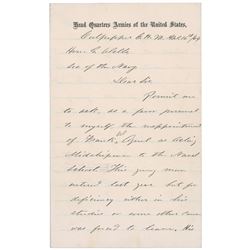 Head Quarters Armies of the United States,
Culpepper C. H. Va.
Hon. G. Welles
Sec of the Navy
Dear Sir
Permit me
to ask, as a favor personal
to myself the reappointment
of Frank as Acting
Midshipman to the Naval
School. This young man
entered last year but for
deficiency either in his
studies or some other cause
was forced to leave. His